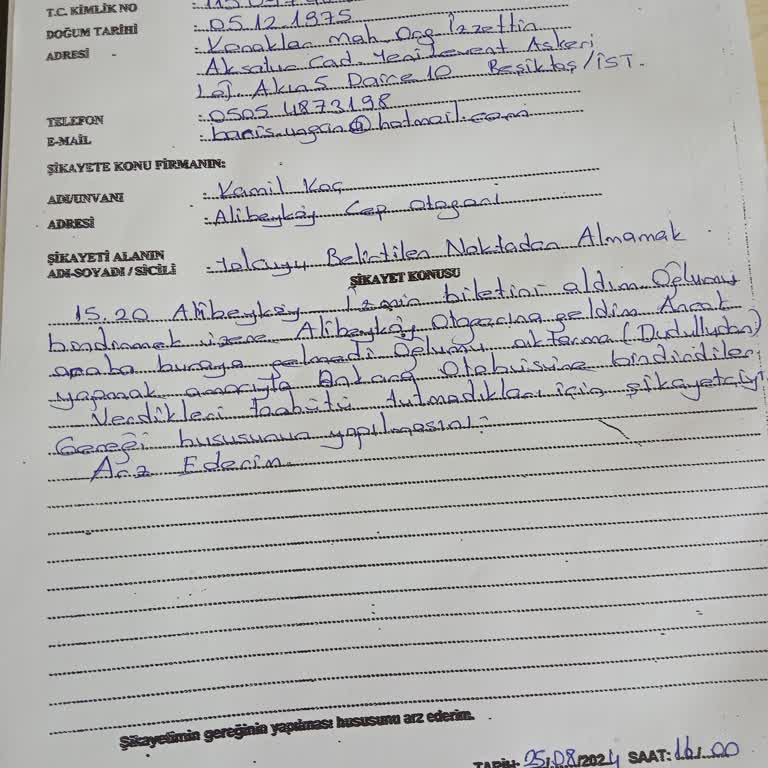 T.C. KİMLİK NO :
DOĞUM TARİHİ : 05.12.1975
ADRESİ : Konaklar Mah Org İzzettin
Aksalur Cad. Yenilevent Askeri
Loj. Akın 5 Daire 10 Beşiktaş/İST.
TELEFON : 0505 4873198
E-MAİL : baris.ungan@hotmail.com
ŞİKAYETE KONU FİRMANIN:
ADI/UNVANI : Kamil Koç
ADRESİ : Alibeyköy Cep otogarı
ŞİKAYETİ ALANIN
ADI-SOYADI / SİCİLİ : Yolcuyu Belirtilen Noktadan Almamak
ŞİKAYET KONUSU
15.20 Alibeyköy İzmir biletini aldım Oğlumu
bindirmek üzere Alibeyköy Otogarına geldim Ancak
araba buraya gelmedi Oğlumu aktarma (Dudulludan)
yapmak amacıyla Ankara Otobüsüne bindirdiler.
Verdikleri taahütü tutmadıkları için şikayetçiyim
Gereği hususunun yapılmasını;
Arz Ederim.
Şikayetimin gereğinin yapılması hususunu arz ederim.
TARİH: 25/08/2024 SAAT: 16/00